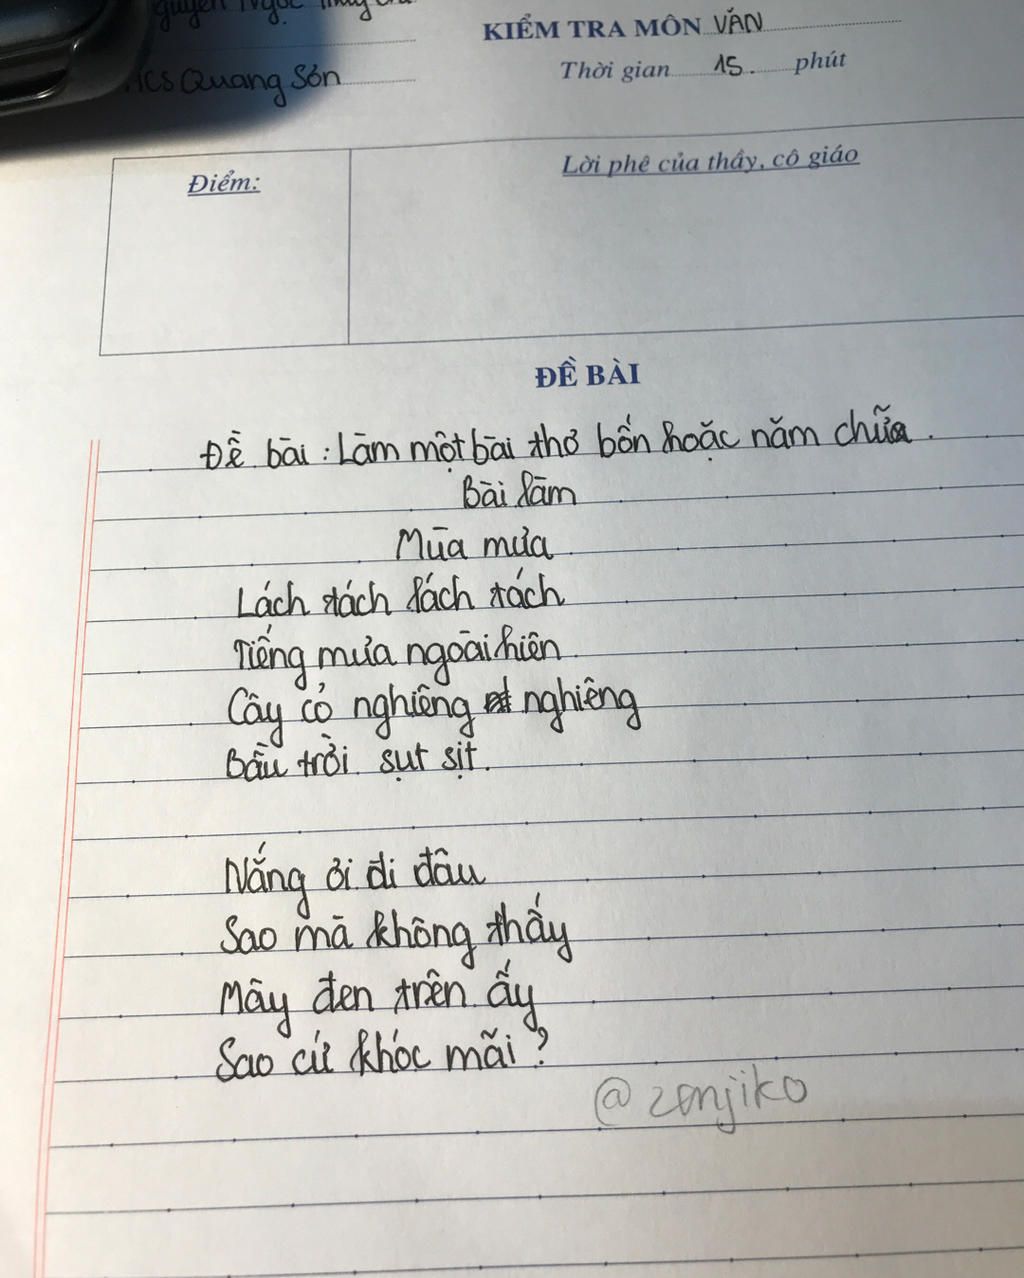 Nguyễn Ngọc
KIỂM TRA MÔN VĂN
THCS Quang Sơn
Thời gian 15. phút
Điểm:
Lời phê của thầy, cô giáo
ĐỀ BÀI
Đề bài: Làm một bài thơ bốn hoặc năm chữ.
Bài làm
Mùa mưa
Lách tách lách tách
Tiếng mưa ngoài hiên
Cây cỏ nghiêng nghiêng
Bầu trời sụt sịt.
Nắng ơi đi đâu
Sao mà không thấy
Mây đen trên ấy
Sao cứ khóc mãi?
@zonjiko